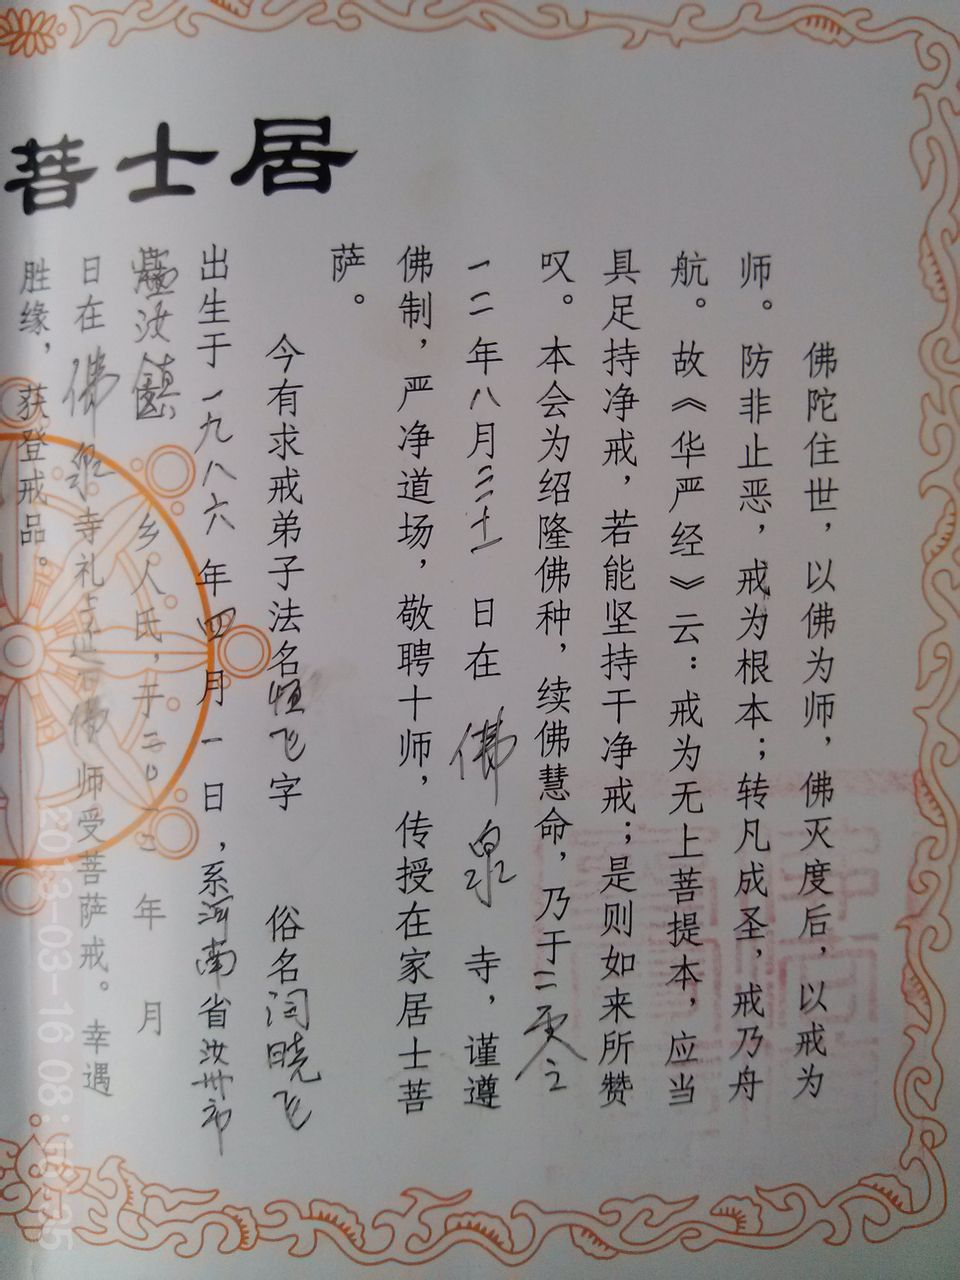 居士菩
佛陀住世，以佛为师，佛灭度后，以戒为
师。防非止恶，戒为根本；转凡成圣，戒乃舟
航。故《华严经》云：戒为无上菩提本，应当
具足持净戒，若能坚持于净戒；是则如来所赞
叹。本会为绍隆佛种，续佛慧命，乃于二
一二年八月二十 日在 佛泉 寺，谨遵
佛制，严净道场，敬聘十师，传授在家居士菩
萨。
今有求戒弟子法名恒飞字 俗名闫晓飞
出生于一九八六年四月一日，系河南省汝州市
汝镇 乡人氏，于二〇一二年 月
日在佛泉寺礼 佛师受菩萨戒。幸遇
胜缘，获登戒品。
2013-03-16 08: